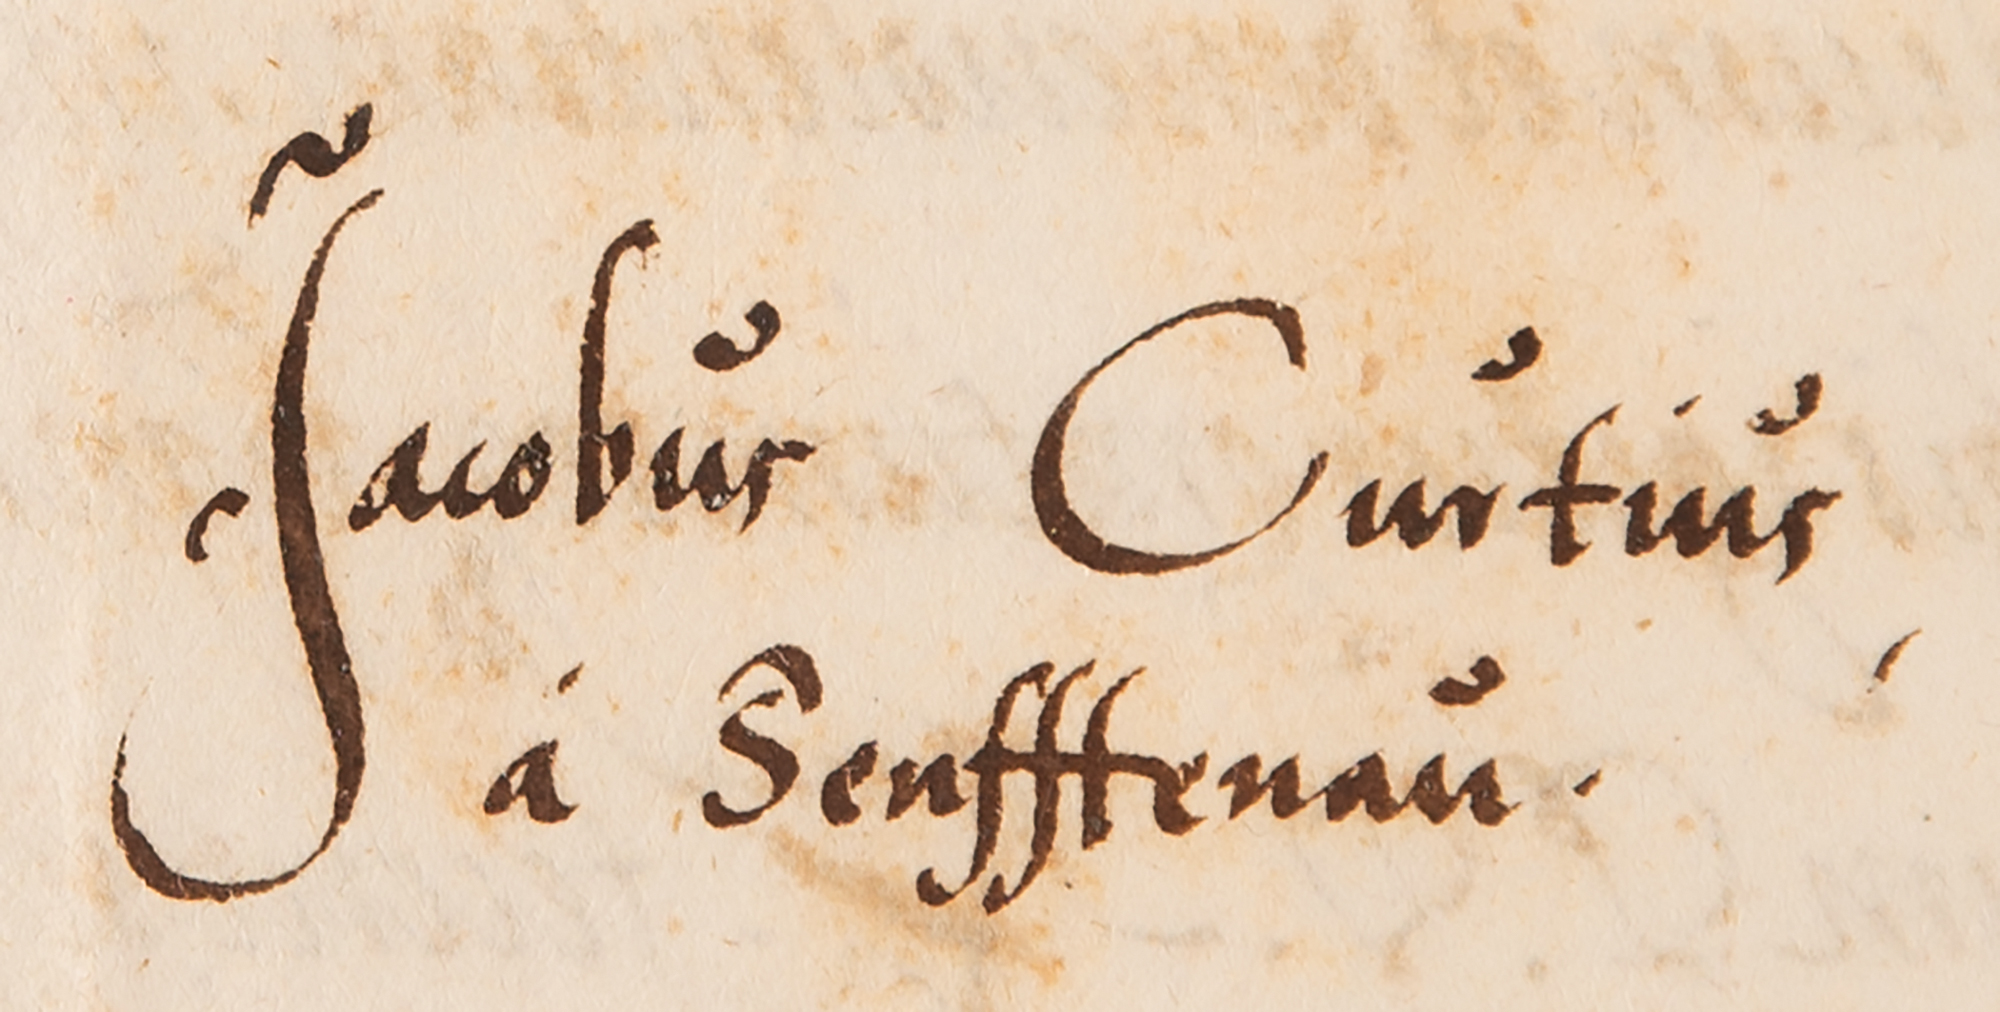 Jacobus Curtius
á Senfftenau.